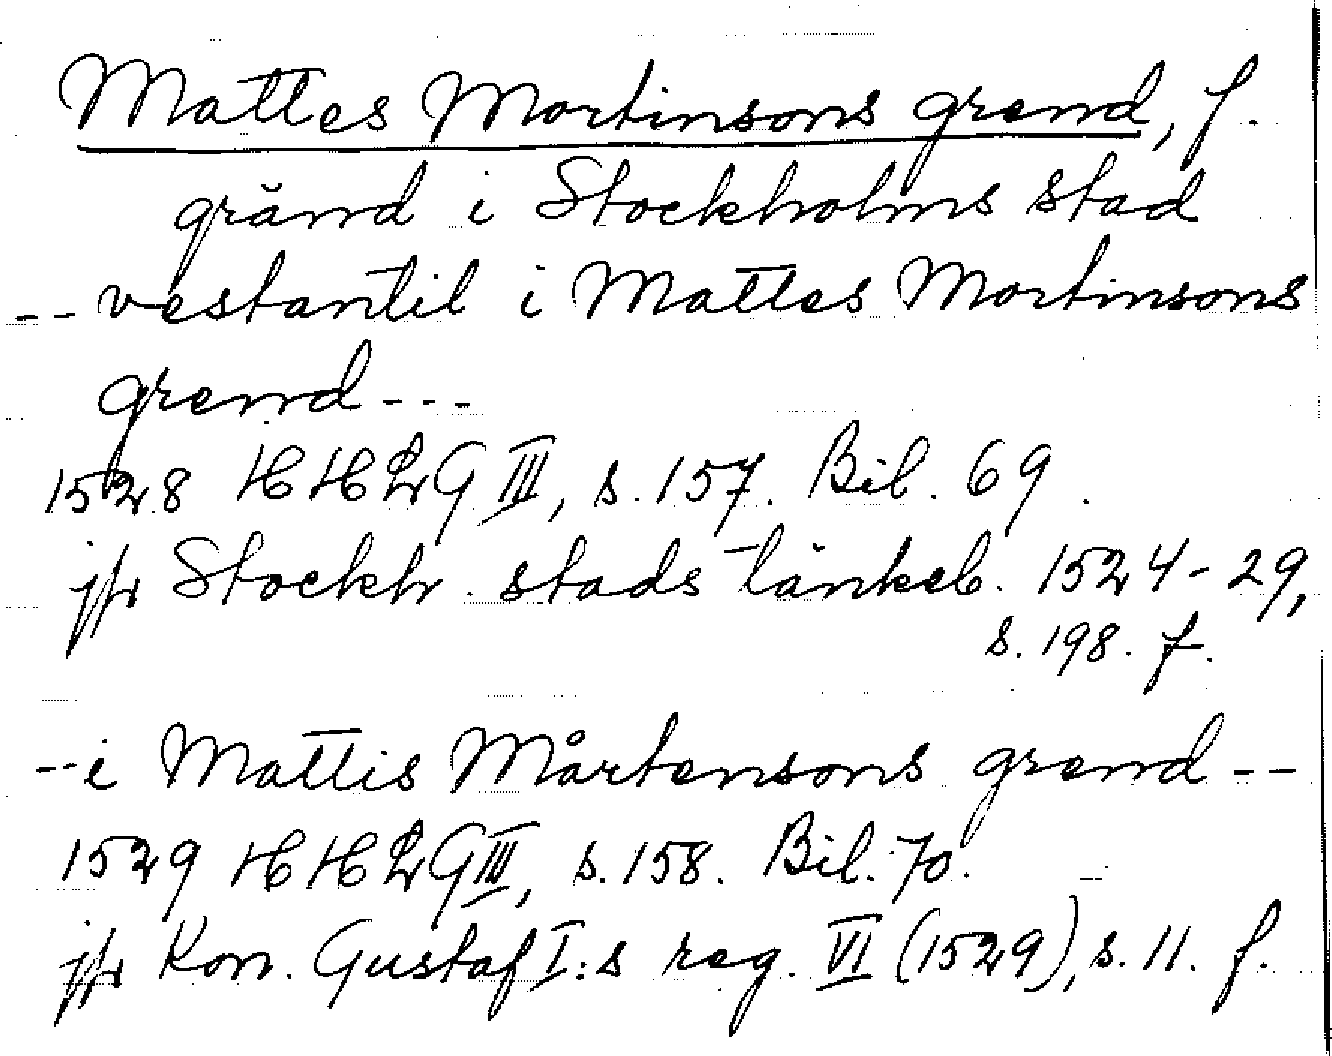 Mattes Mortinsons grend, f.
gränd i Stockholms stad
-- vestantil i Mattes Mortinsons
grend ---
1528 HHLG III, s. 157. Bil. 69.
jfr Stockh. stads tänkeb. 1524-29,
s. 198. f.
-- i Mattis Mårtensons grend --
1529 HHLG III, s. 158. Bil. 70.
jfr Kon. Gustaf I:s reg. VI (1529), s. 11. f.